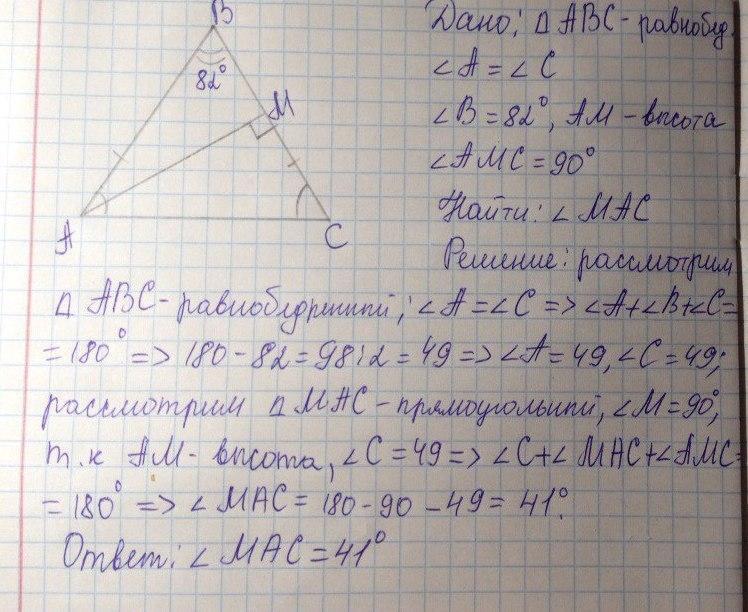 B
82°
M
A
C
Дано: △ ABC - равнобед.
∠A = ∠C
∠B = 82°, AM - высота
∠AMC = 90°
Найти: ∠ MAC
Решение: рассмотрим
△ ABC - равнобедренный; ∠A = ∠C => ∠A+∠B+∠C=
= 180° => 180 - 82 = 98:2 = 49 => ∠A = 49, ∠C = 49;
рассмотрим △ MAC - прямоугольный, ∠M = 90°,
т.к AM - высота, ∠C = 49 => ∠C+∠ MAC+∠AMC=
= 180° => ∠ MAC = 180 - 90 - 49 = 41°.
Ответ: ∠ MAC = 41°